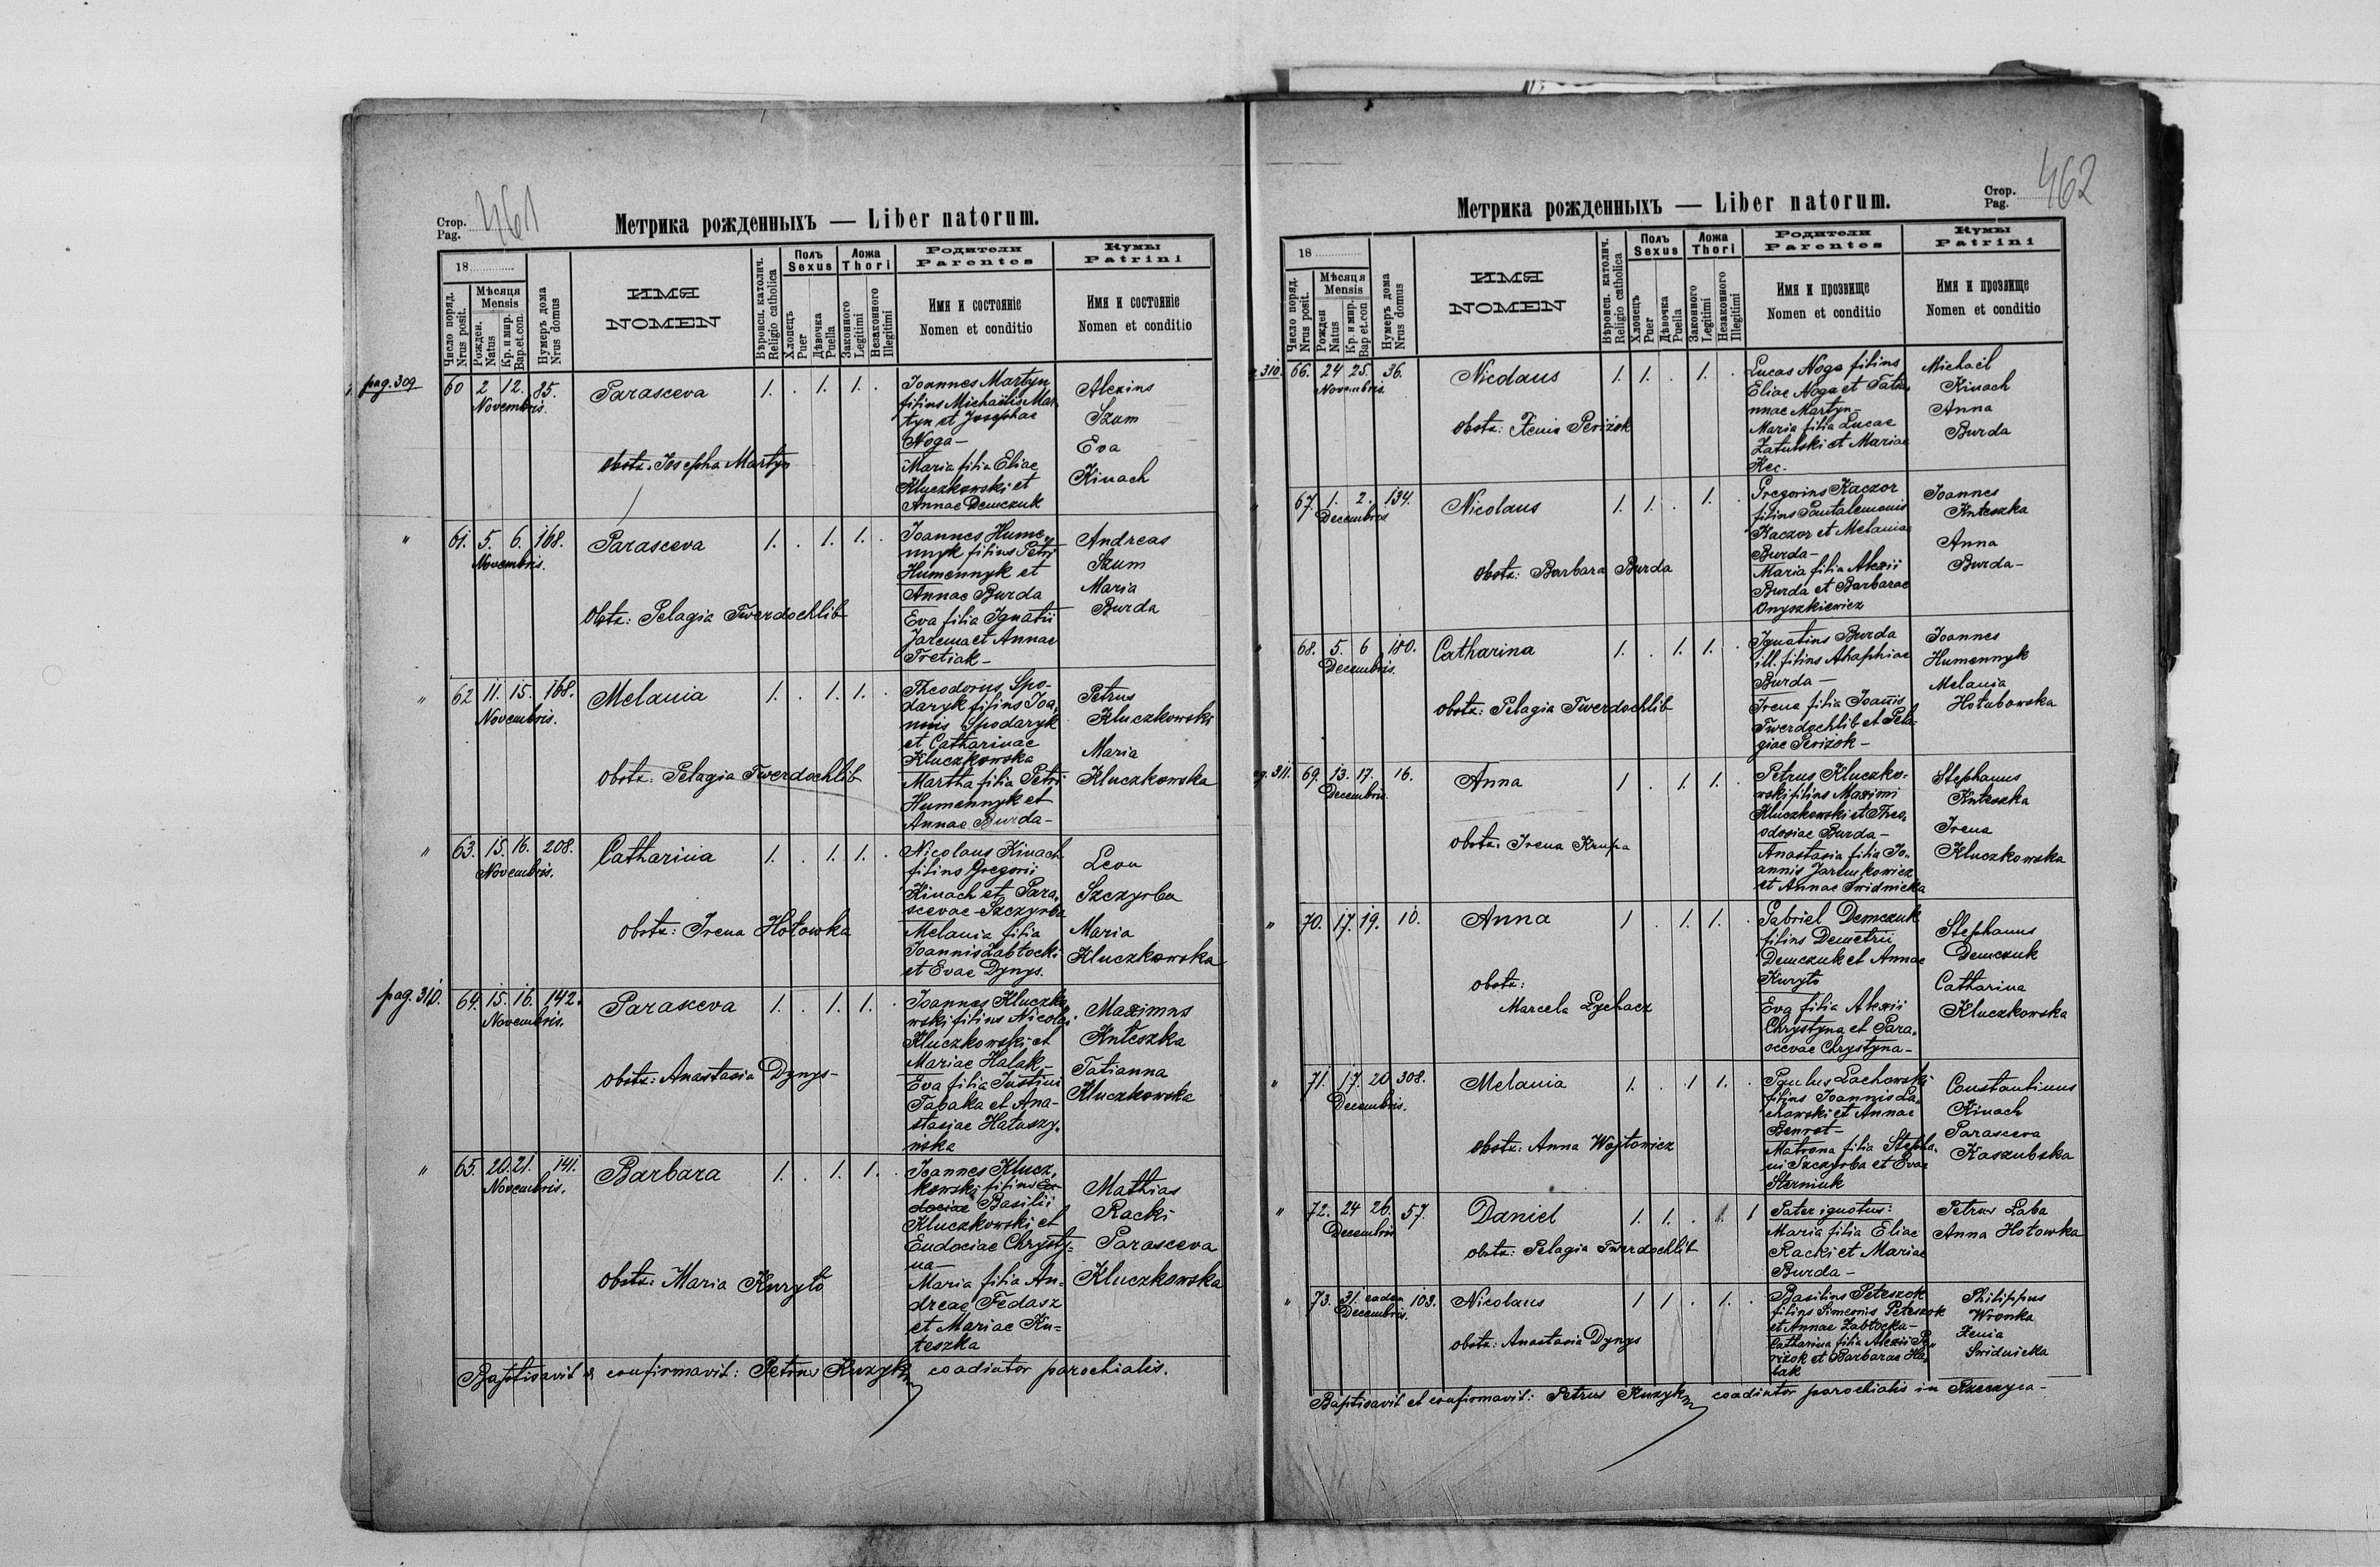 Стор.
Pag. 461
Метрика рожденныхъ — Liber natorum.
18
Число поряд.
Nrus posit.
Мѣсяця
Mensis
Рожден.
Natus
Кр. и мир.
Bap.et.con.
Нумеръ дома
Nrus domus
ИМЯ
NOMEN
Вѣроисп. католич.
Religio catholica
Полъ
Sexus
Хлопецъ
Puer
Дѣвочка
Puella
Ложа
Thori
Законного
Legitimi
Незаконного
Illegitimi
Родители
Parentes
Имя и состоянiе
Nomen et conditio
Кумы
Patrini
Имя и состоянiе
Nomen et conditio
pag. 309
60 2 12. 85.
Novembris.
Parasceva
1. . 1. 1. .
obstz. Josepha Martyn
Joannes Martyn
filius Michaëlis Mar-
tyn et Josephae
Noga —
Maria filia Eliae
Kluczkowski et
Annae Demczuk
Alexius
Szum
Eva
Kinach
"
61. 5. 6. 168.
Novembris.
Parasceva
1. . 1. 1. .
Obstz: Pelagia Twerdochlib
Joannes Hume„
nnyk filius Petri
Humennyk et
Annae Burda
Eva filia Ignatii
Jarema et Annae
Tretiak —
Andreas
Szum
Maria
Burda
"
62 11. 15. 168.
Novembris.
Melania
1. . 1. 1. .
obstz: Pelagia Twerdochlib
Theodorus Spo-
daryk filius Joa„
nnis Spodaryk
et Catharinae
Kluczkowska
Martha filia Petri
Humennyk et
Annae Burda —
Petrus
Kluczkowski
Maria
Kluczkowska
"
63. 15. 16. 208.
Novembris.
Catharina
1. . 1. 1. .
obstz: Irena Hołowka
Nicolaus Kinach
filius Gregorii
Kinach et Para„
scevae Szczyrba
Melania filia
Joannis Zabłocki
et Evae Dynys.
Leon
Szczyrba
Maria
Kluczkowska
pag. 310.
64. 15. 16. 142.
Novembris.
Parasceva
1. . 1. 1. .
obstz: Anastasia Dynys —
Joannes Kluczko
wski filius Nicolai
Kluczkowski et
Mariae Halak —
Eva filia Justini
Tabaka et Ana-
stasiae Hałuszy„
ńska
Maximus
Kuteszka
Tatianna
Kluczkowska
"
65. 20. 21. 141.
Novembris.
Barbara
1. . 1. 1. .
obstz: Maria Kuryło
Joannes Klucz„
kowski filius Eu
dociae Basilii
Kluczkowski et
Eudociae Chrysty=
na —
Maria filia An=
dreae Fedasz
et Mariae Ku=
teszka
Mathias
Racki
Parasceva
Kluczkowska
Baptisavit & confirmavit: Petrus Kuzyk coadiutor parochialis.
Стор.
Pag. 462
Метрика рожденныхъ — Liber natorum.
18
Число поряд.
Nrus posit.
Мѣсяця
Mensis
Рожден
Natus
Кр. и мир.
Bap et.con
Нумеръ дома
Nrus domus
ИМЯ
NOMEN
Вѣроисп. католич.
Religio catholica
Полъ
Sexus
Хлопецъ
Puer
Дѣвочка
Puella
Ложа
Thori
Законного
Legitimi
Незаконного
Illegitimi
Родители
Parentes
Имя и прозвище
Nomen et conditio
Кумы
Patrini
Имя и прозвище
Nomen et conditio
310.
66. 24 25. 36.
Novembris.
Nicolaus
1. 1. . 1. .
obstz: Xenia Periżok
Lucas Noga filius
Eliae Noga et Tatia„
nnae Martyn —
Maria filia Lucae
Zatulski et Mariae
Kec.
Michaël
Kinach
Anna
Burda
67. 1. 2. 134.
Decembris
Nicolaus
1. 1. . 1. .
obstz: Barbara Burda
Gregorius Kaczor
filius Pantalemonis
Kaczor et Melaniae
Burda —
Maria filia Alexii
Burda et Barbarae
Onyszkiewicz
Joannes
Kuteszka
Anna
Burda —
68. 5. 6 180.
Decembris.
Catharina
1. . 1. 1. .
obstz: Pelagia Twerdochlib
Ignatius Burda
ill. filius Ahaphiae
Burda —
Irena filia Joañis
Twerdochlib et Pela-
giae Periżok —
Joannes
Humennyk
Melania
Hołubowska
g. 311.
69. 13. 17. 16.
Decembris.
Anna
1 . 1. 1. .
obstz: Irena Krupa
Petrus Kluczko=
wski filius Maximi
Kluczkowski et Theo„
odosiae Burda —
Anastasia filia Jo„
annis Jaremkowicz
et Annae Swidnicka
Stephanus
Kuteszka
Irena
Kluczkowska
"
70. 17. 19. 10.
Anna
1 . 1. 1. .
obstz:
Marcela Lychacz
Gabriel Demczuk
filius Demetrii
Demczuk et Annae
Kuryło
Eva filia Alexii
Chrystyna et Para„
scevae Chrystyna —
Stephanus
Demczuk
Catharina
Kluczkowska
"
71. 17. 20 308.
Decembris.
Melania
1. . 1 1. .
obstz: Anna Wojtowicz
Paulus Lachowski
filius Joannis La„
chowski et Annae
Matrona filia Stepha„
ni Szczyrba et Evae
Sterniuk
Constantinus
Kinach
Parasceva
Kaszubska
"
72. 24 26. 57.
Decembris
Daniel
1. 1. . 1. 1
obstz: Pelagia Twerdochlib
Pater ignotus:
Maria filia Eliae
Racki et Mariae
Burda —
Petrus Łaba
Anna Hołowka
"
73. 31. eadem 103.
Decembris.
Nicolaus
1 1 . 1. .
obstz: Anastasia Dynys
Basilius Peteszok
filius Simeonis Peteszok
et Annae Zabłocka —
Catharina filia Alexii Pe„
riżok et Barbarae Ha„
lak
Philippus
Wronka
Xenia
Swidnicka
Baptisavit et confirmavit: Petrus Kuzyk coadiutor parochialis in Rzeczyca —